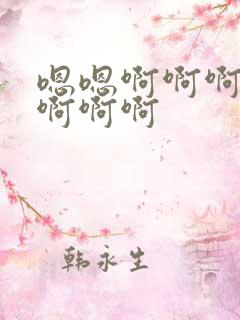 嗯嗯啊啊啊
啊啊啊
韩永生